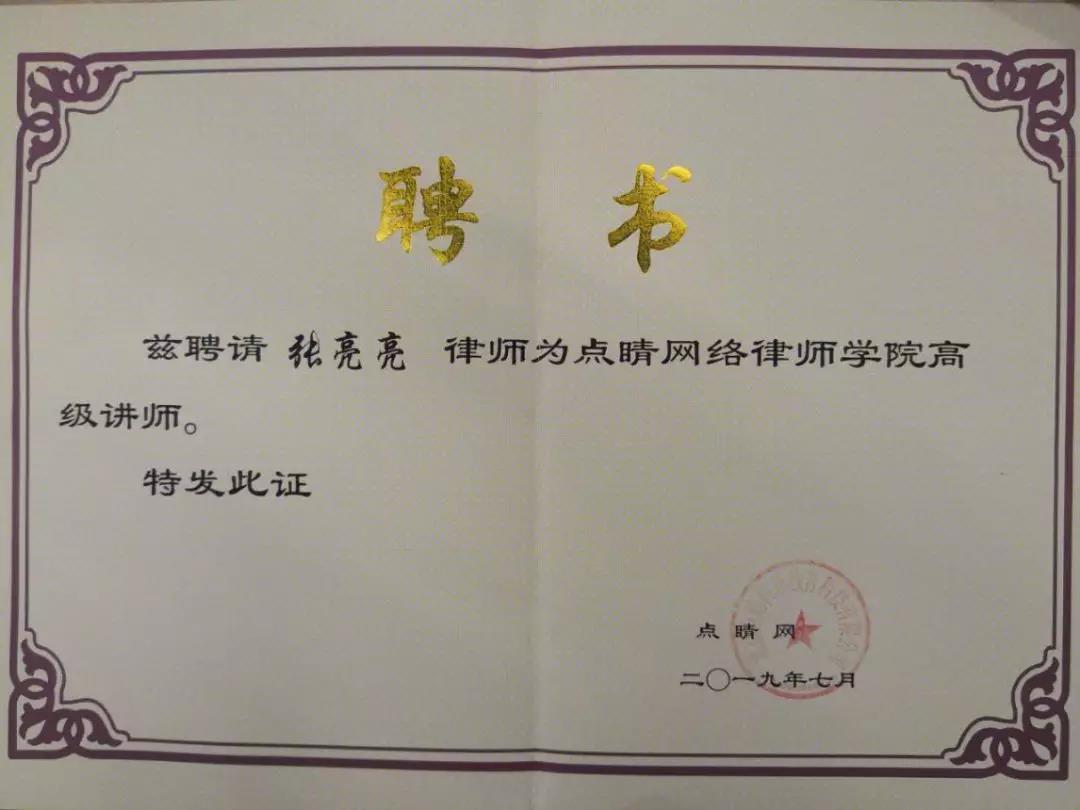 聘 书
兹聘请 张亮亮 律师为点睛网络律师学院高
级讲师。
特发此证
点 睛 网
二〇一九年七月